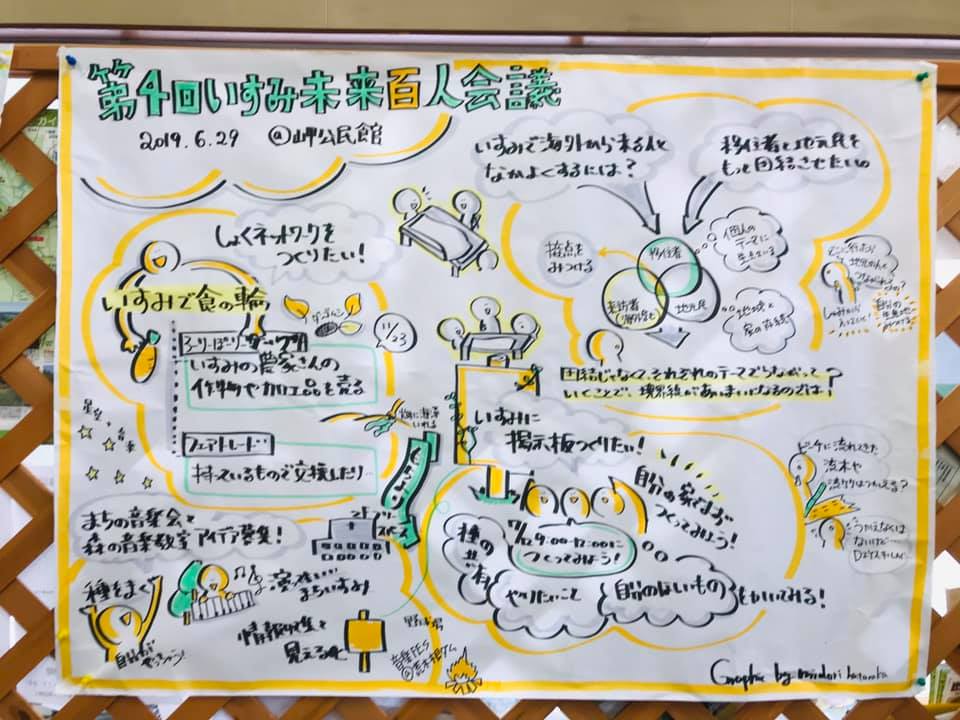 第4回いすみ未来百人会議
2019.6.29 @岬公民館
いすみで海外から来る人と
なかよくするには?
移住者と地元民を
もっと団結させたいの
しょくネットワークを
つくりたい!
いすみで食の輪
11/23
いすみの農家さんの
作物や加工品を売る
フェアトレード
持っているもので交換したり
星空、音楽
接点を
みつける
移住者
地元民
個人の
テーマに
生きている
地域と
家の存続
団結じゃなくて、それぞれのテーマでつながって
いくことで、境界線があいまいになるのでは?
いすみに
掲示板つくりたい!
自分の家でまず
つくってみよう!
9:00-12:00に
つくってみよう!
種の
共有
やりたいこと
自分のほしいもの
もかいてみる!
ビーチに流れてきた
流木や
まちの音楽会と
森の音楽教室 アイデア募集!
ステージ
スペース
種をまく
自分が
やっちゃう!
まちいすみ
情報収集と
見える化
野外
音楽FES
@荒木根ダム
Graphic by midori